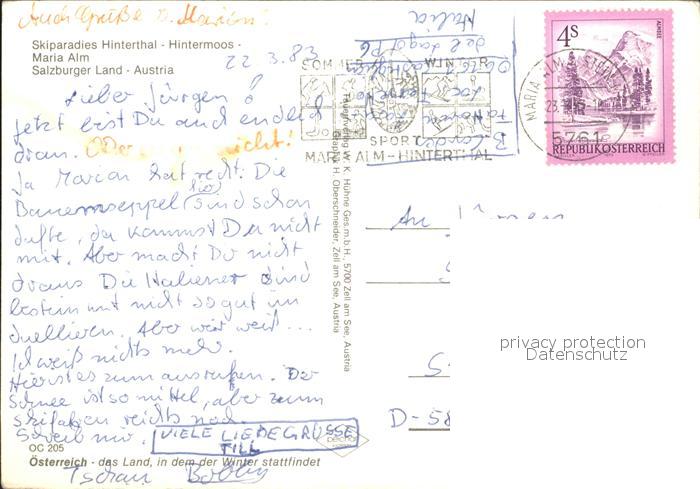 Auch Grüße v. Marion!
Skiparadies Hinterthal - Hintermoos -
Maria Alm
Salzburger Land - Austria
22.3.83
Lieber Jürgen!
Jetzt bist Du auch endlich
dran. Oder nicht!
Ja Marion hat recht. Die
Bauernseppel (hier) sind schon
dufte, da kommst Du nicht
mit. Aber mach Dir nicht
draus Die Italiener sind
bestimmt nicht so gut im
duellieren. Aber wer weiß...
Ich weiß nichts mehr.
Hier ist es zum ausraufen. Der
Schnee ist so mittel, aber zum
skifahren reichts noch.
Schreib mir.
VIELE LIEBE GRÜSSE
TILL
OC 205
Österreich - das Land, in dem der Winter stattfindet
Tschau Bobby
Hauptverlag W. K. Hühne Ges.m.b.H., 5700 Zell am See, Austria
Graphik H. Oberschneider, Zell am See, Austria
Italia
del Lago
SOMMER WINTER
SPORT
MARIA ALM - HINTERTHAL
MARIA ALM A. STEIN
5761
4s
ALMSEE
REPUBLIK ÖSTERREICH
An
D-58
privacy protection
Datenschutz